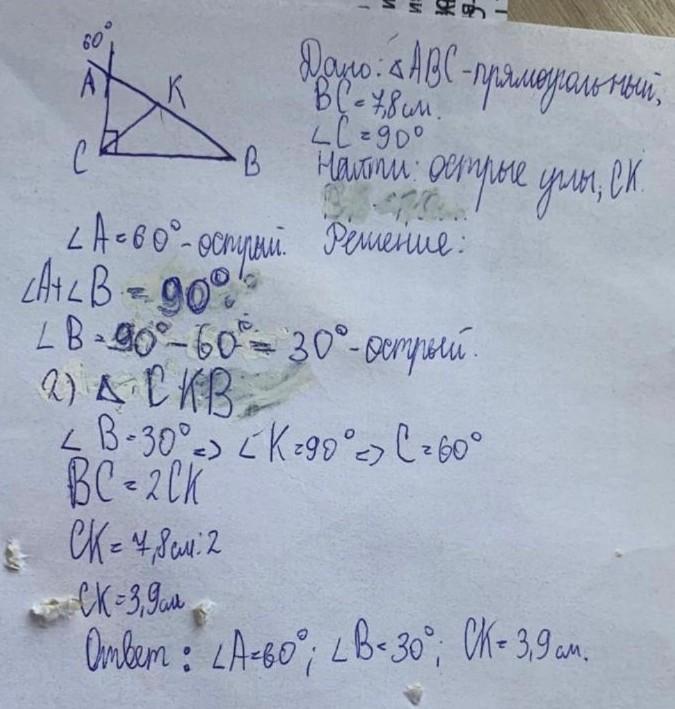 60°
A
K
C
B
Дано: △ABC - прямоугольный,
BC = 7,8 см.
∠C = 90°
Найти: острые углы, CK.
∠A = 60° - острый. Решение:
∠A + ∠B = 90°
∠B = 90° - 60° = 30° - острый.
2) △ CKB
∠ B = 30° => ∠K = 90° => C = 60°
BC = 2CK
CK = 7,8 см : 2
CK = 3,9 см
Ответ : ∠A = 60° ; ∠B = 30° ; CK = 3,9 см.